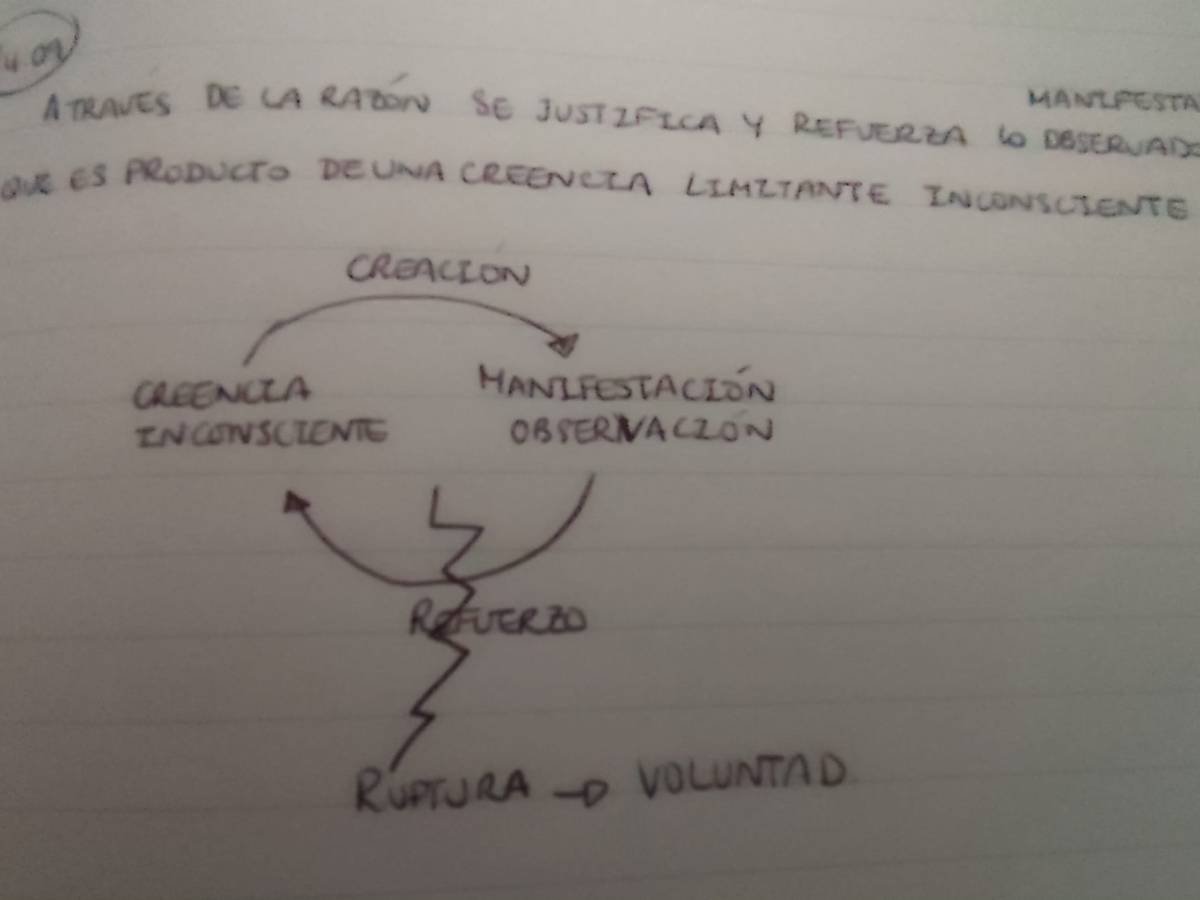 MANIFESTA
A TRAVÉS DE LA RAZÓN SE JUSTIFICA Y REFUERZA LO OBSERVADO
QUE ES PRODUCTO DE UNA CREENCIA LIMITANTE INCONSCIENTE
CREACIÓN
CREENCIA
INCONSCIENTE
MANIFESTACIÓN
OBSERVACIÓN
REFUERZO
RUPTURA → VOLUNTAD